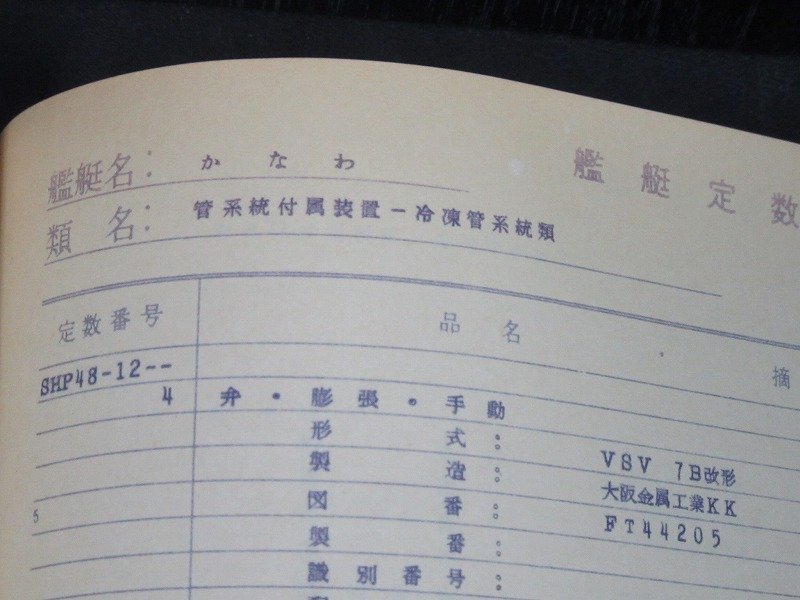 艦艇定数
艦艇名：かなわ
類名：管系統付属装置－冷凍管系統類
定数番号 品名 摘
SHP48-12--
4 弁・膨張・手動
形式： VSV 7B改形
製造： 大阪金属工業KK
図番： FT44205
5
製番：
識別番号：